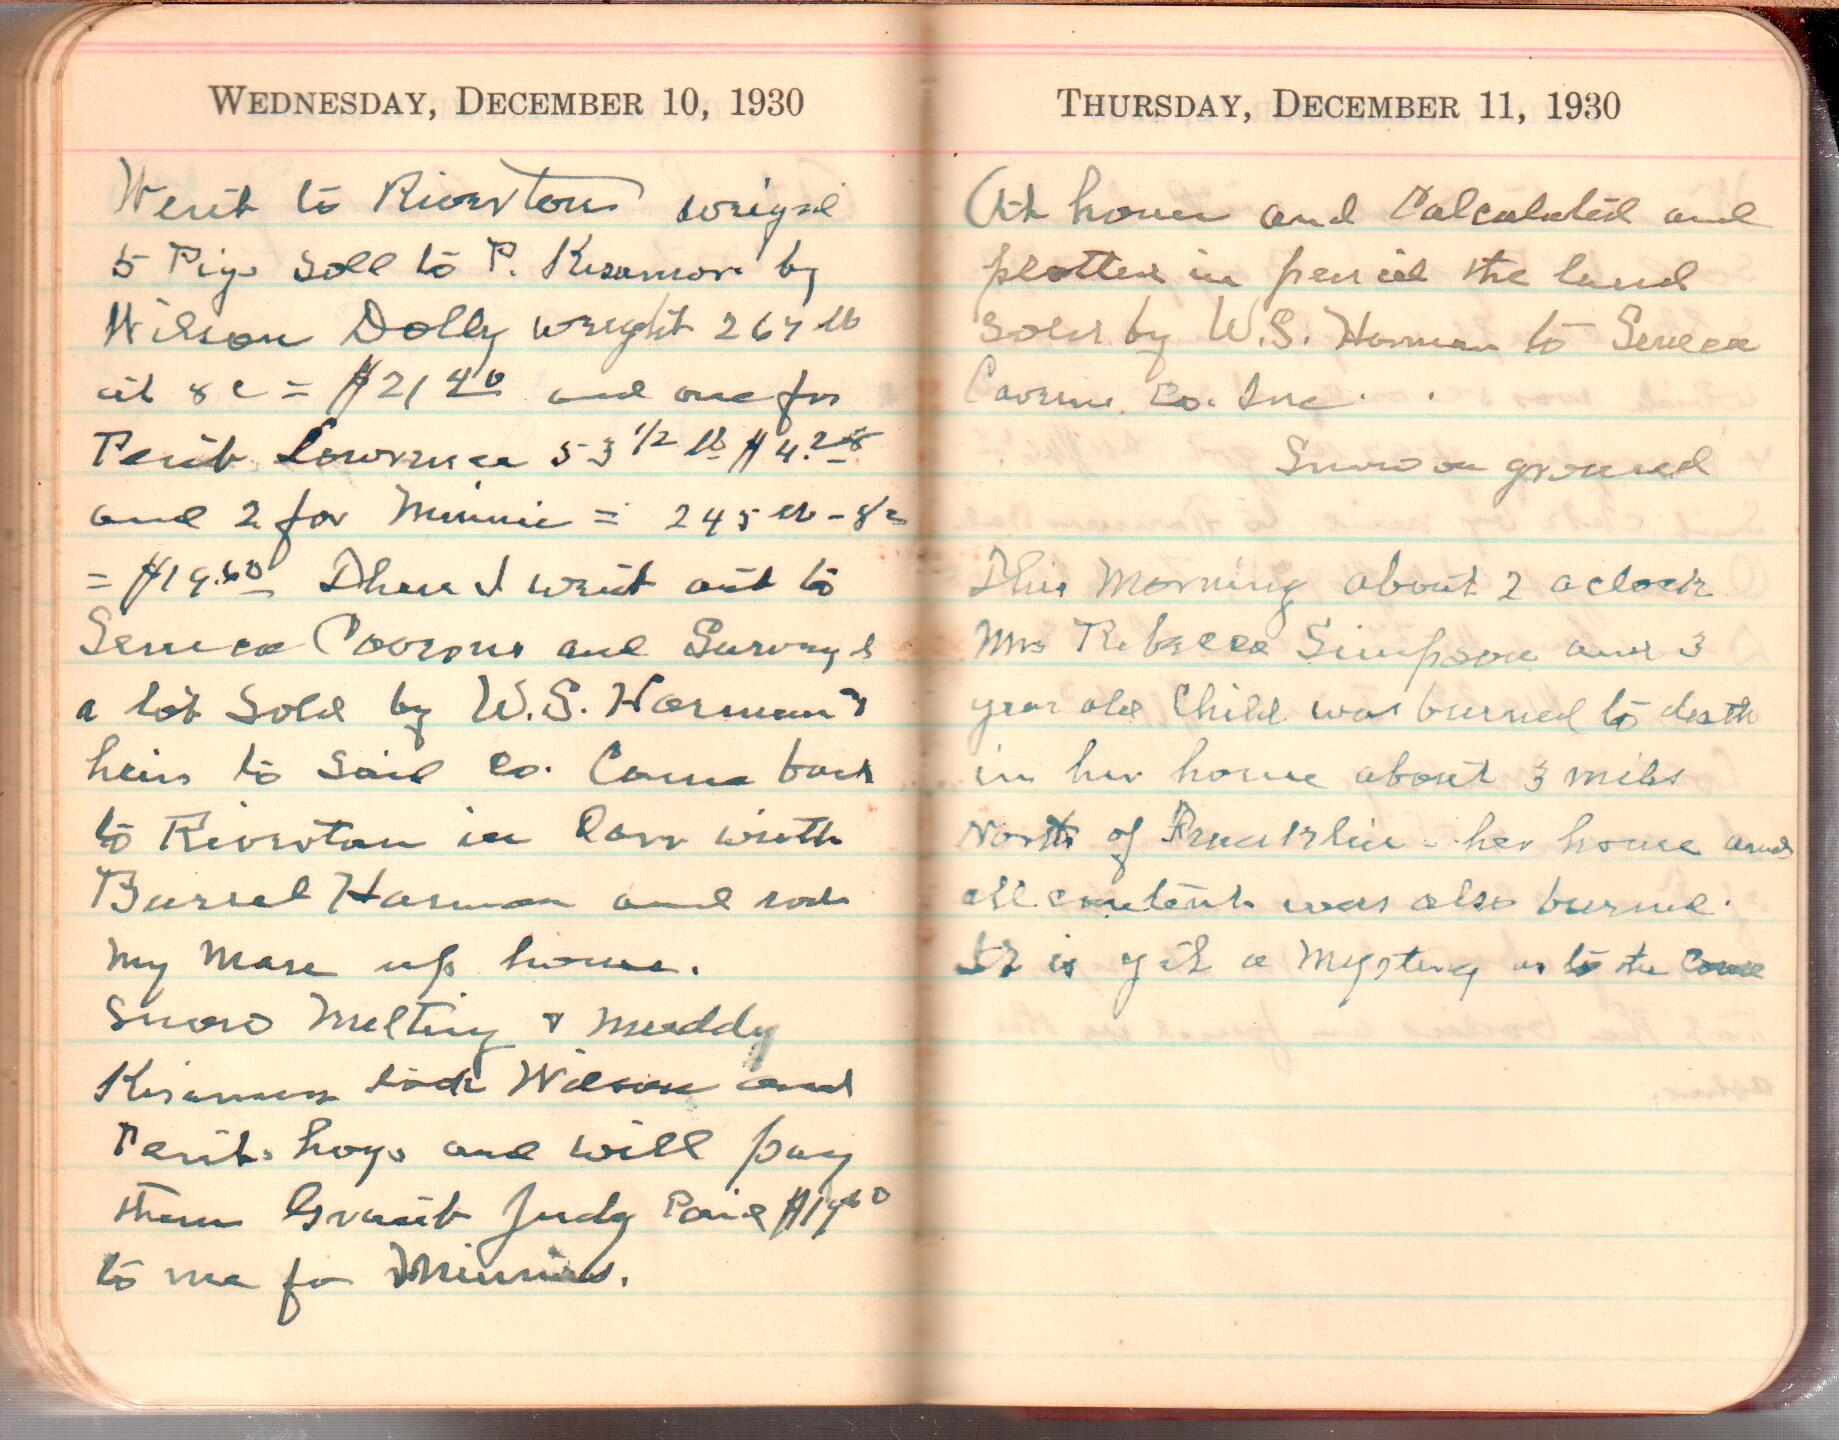 WEDNESDAY, DECEMBER 10, 1930
Went to Riverton weighed
5 Pigs Sold to P. Kisamore by
Wilson Dolly weight 267 lb
at 8c = $21.40 and one for
Lowrence 53 1/2 lb $4.28
and 2 for Minnie = 245 lb - 8c
= $19.60 Then I went out to
Seneca Caverns and Surveyed
a lot Sold by W.S. Harman &
heirs to Said Co. Came back
to Riverton in Carr with
Burrel Harman and rode
my Mare up home.
Snow Melting & Muddy
Kisamore took Wilson and
hogs and will pay
them Grant Judy Paid $19.60
to me for Minnies.
THURSDAY, DECEMBER 11, 1930
At home and Calculated and
plotted in pencil the land
sold by W.S. Harman to Seneca
Caverns Co. Inc.
Snow on ground
This Morning about 2 aclock
Mrs Rebecca Simpson and 3
year old Child was burned to death
in her home about 3 miles
North of Franklin - her home and
all contents was also burned.
It is yet a Mystery as to the Cause